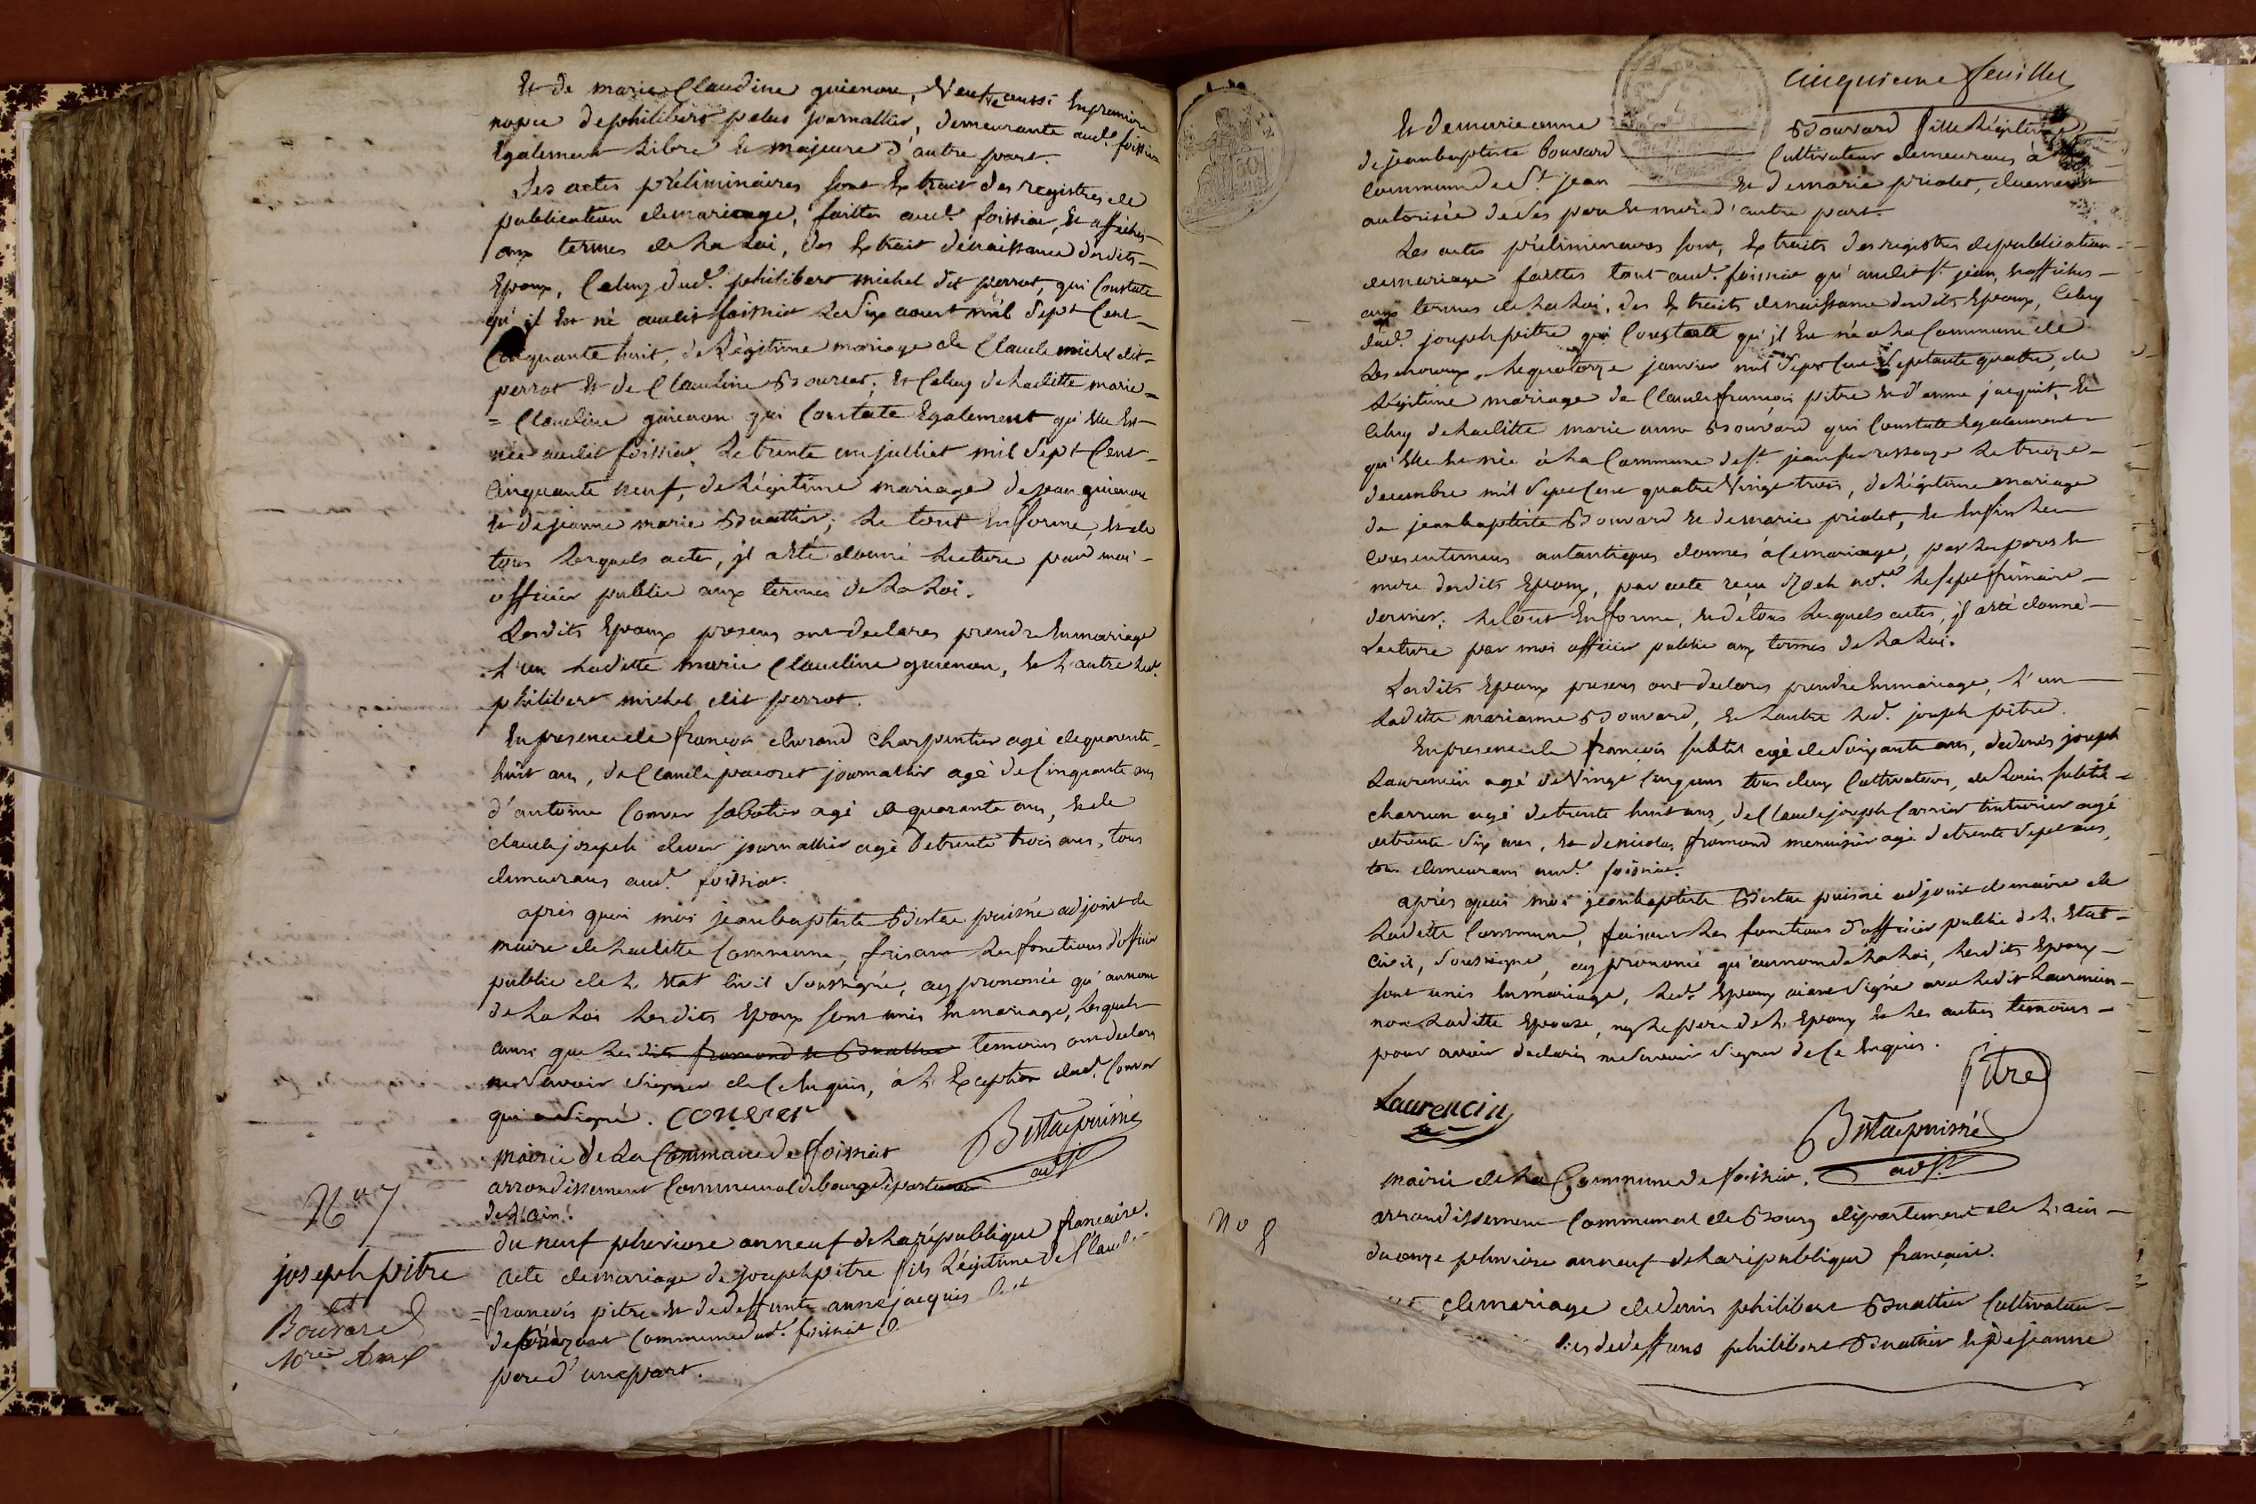 Et de marie Claudine guienon, Veufve aussi En premiere
nopce de philibert pelus journallier, demeurante aud.t foissiat
Egalement Libre et majeure d'autre part.
Les actes préliminaires sont Extrait des registres de
publication de mariage, faittes aud.t foissiat, et affichés
aux termes de La Loi, des Extrait de naissance desdits
Epoux, Celuy dud.t philibert michel dit perrot, qui Constate
qu'il Est né audit foissiat Le Six aoust mil Sept Cent
Cinquante huit, de Légitime mariage de Claude michel dit
perrot et de Claudine Bourcet; et Celuy de Laditte marie
= Claudine guienon qui Constate Egalement qu'elle Est
née audit foissiat Le trente un juillet mil Sept Cent
Cinquante neuf, de Légitime mariage de jean guienon
et de jeanne marie Buathier; Le tout En forme, et de
tous Lesquels actes, il a été donné Lecture par moi
officier public aux termes de La Loi.
Lesdits Epoux presens ont declarés prendre En mariage
L'un Laditte marie Claudine guienon, et L'autre Led.t
philibert michel dit perrot.
En presence de françois durand Charpentier agé de quarente
huit ans, de Claude pacoret journallier agé de Cinquante ans
d'antoine Conver sabotier agé de quarante ans, et de
claude joseph clever journallier agé de trente trois ans, tous
demeurans aud.t foissiat.
après quoi moi jean baptiste Bistac puisné adjoint de
maire de Laditte Commune, faisant Les fonctions d'officier
public de L'Etat Civil Soussigné, ay prononcé qu'au nom
de La Loi Lesdits Epoux sont unis En mariage, Lesquels
ainsi que Lesdits fromond et Buathier temoins ont declarés
ne Savoir Signer de Ce Enquis, à L'Exception dud.t Conver
qui a Signé. conver
Bistac puisné
adj.t
mairie de La Commune de foissiat
arrondissement Communal de bourg département
de L'ain.
N.o 7
joseph pitre
et
Bouvard
M.rie Anne
du neuf pluviose an neuf de La république francaise.
acte de mariage de joseph pitre fils Légitime de Claude
= françois pitre et de deffunte anne jacquis
Commune dud.t foissiat
pere d'une part.
Cinquieme feuillet
Et de marie anne Bouvard fille Légitime
de jean baptiste bouvard Cultivateur demeurans à
Commune de S.t jean et de marie priolet, duement
autorisée de Ses pere et mere d'autre part.
Les actes préliminaires sont, Extraits des registres de publication
de mariage faittes tant aud.t foissiat qu'audit S.t jean, et affichés
aux termes de La Loi, des Extraits de naissance desdits Epoux, Celuy
dud.t joseph pitre qui Constate qu'il Est né a La Commune de
Lescheroux, Le quatorze janvier mil Sept Cent Septante quatre, de
Légitime mariage de Claude françois pitre et d'anne jacquit, et
Celuy de Laditte marie anne Bouvard qui Constate Egalement
qu'Elle Est née à La Commune de S.t jean sur ressouze Le treize
decembre mil Sept Cent quatre Vingt trois, de Légitime mariage
de jean baptiste Bouvard et de marie priolet, et Enfin Les
consentemens autantiques donnés à Ce mariage, par Les peres et
mere desdits Epoux, par acte reçu not.re Le sept frimaire
dernier; Le tout En forme, et de tous Lesquels actes, il a été donné
Lecture par moi officier public aux termes de La Loi.
Lesdits Epoux presens ont declarés prendre En mariage, L'un
Laditte marianne Bouvard, et Lautre Led.t joseph pitre.
En presence de françois subtil agé de Soixante ans, de denis joseph
Laurencin agé de Vingt Cinq ans tous deux Cultivateurs, de Louis subtil
charron agé de trente huit ans, de Claude joseph Carrier tinturier agé
de trente Six ans, et de nicolas fromond menuisier agé de trente Sept ans,
tous demeurans aud.t foissiat.
après quoi moi jean baptiste Bistac puisné adjoint de maire de
Laditte Commune, faisant Les fonctions d'officier public de L'Etat
Civil, Soussigné, ay prononcé qu'au nom de La Loi, Lesdits Epoux
sont unis En mariage, Led.t Epoux aiant Signé avec Ledit Laurencin
non Laditte Epouse, ny Le pere de L'Epoux et Les autres temoins
pour avoir declarés ne Savoir Signer de Ce Enquis.
pitre
Laurencin
Bistac puisné
adj.t
mairie de La Commune de foissiat.
arrondissement Communal de Bourg département de L'ain
N.o 8
du onze pluviose an neuf de La république française.
de mariage de denis philibert Buathier Cultivateur
fils de deffuns philibert Buathier et de jeanne